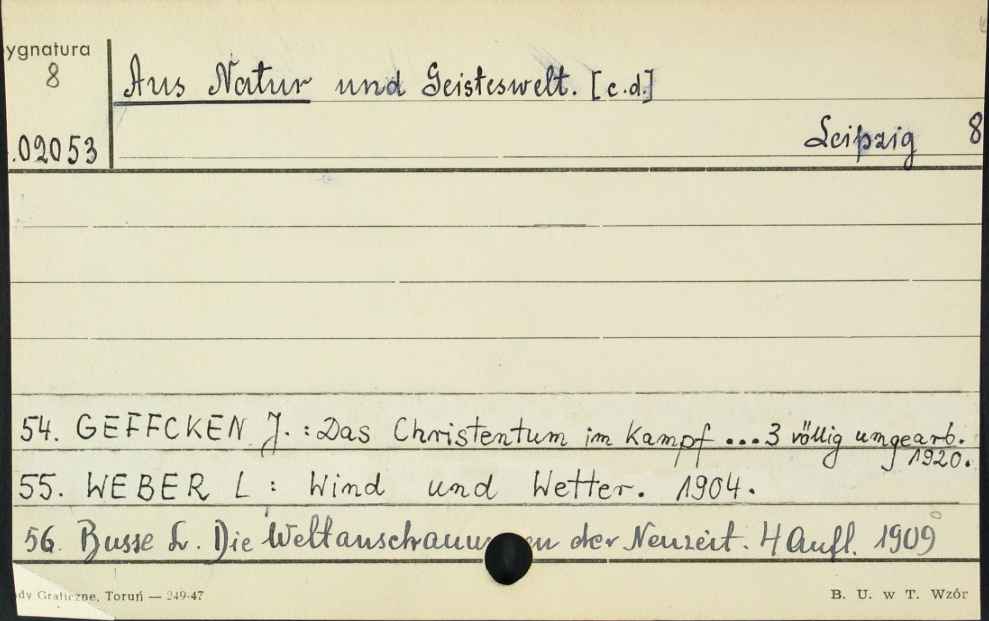 ygnatura
8
Aus Natur und Geisteswelt. [c.d.]
.02053
Leipzig 8
54. GEFFCKEN J. : Das Christentum im Kampf ... 3 völlig umgearb.
1920.
55. WEBER L : Wind und Wetter. 1904.
56. Busse L. Die Weltanschauu en der Neuzeit. 4 Aufl. 1909
dy Graficzne, Toruń — 249-47
B. U. w T. Wzór